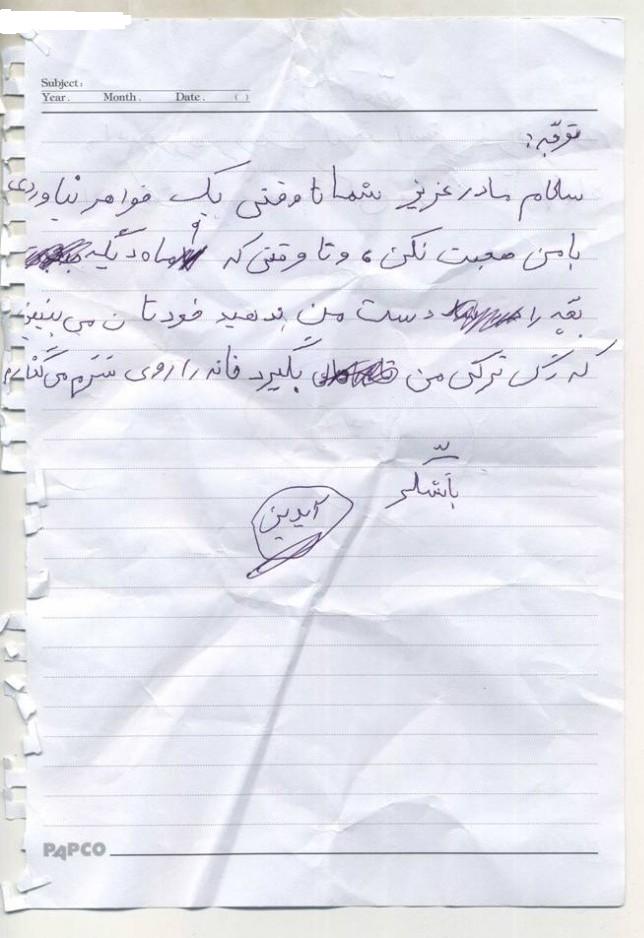 Subject:
Year. Month. Date. ( )
توجّه:
سلام مادر عزیز شما تا وقتی یک خواهر نیاوردی
با من صحبت نکن، و تا وقتی که ۹ ماه دیگه
بچه را دست من بدهید خودتان می بینین
که رگ ترکی من بگیرد خانه را روی سَرَم می گذارم
باتشکر
آیدین
PAPCO